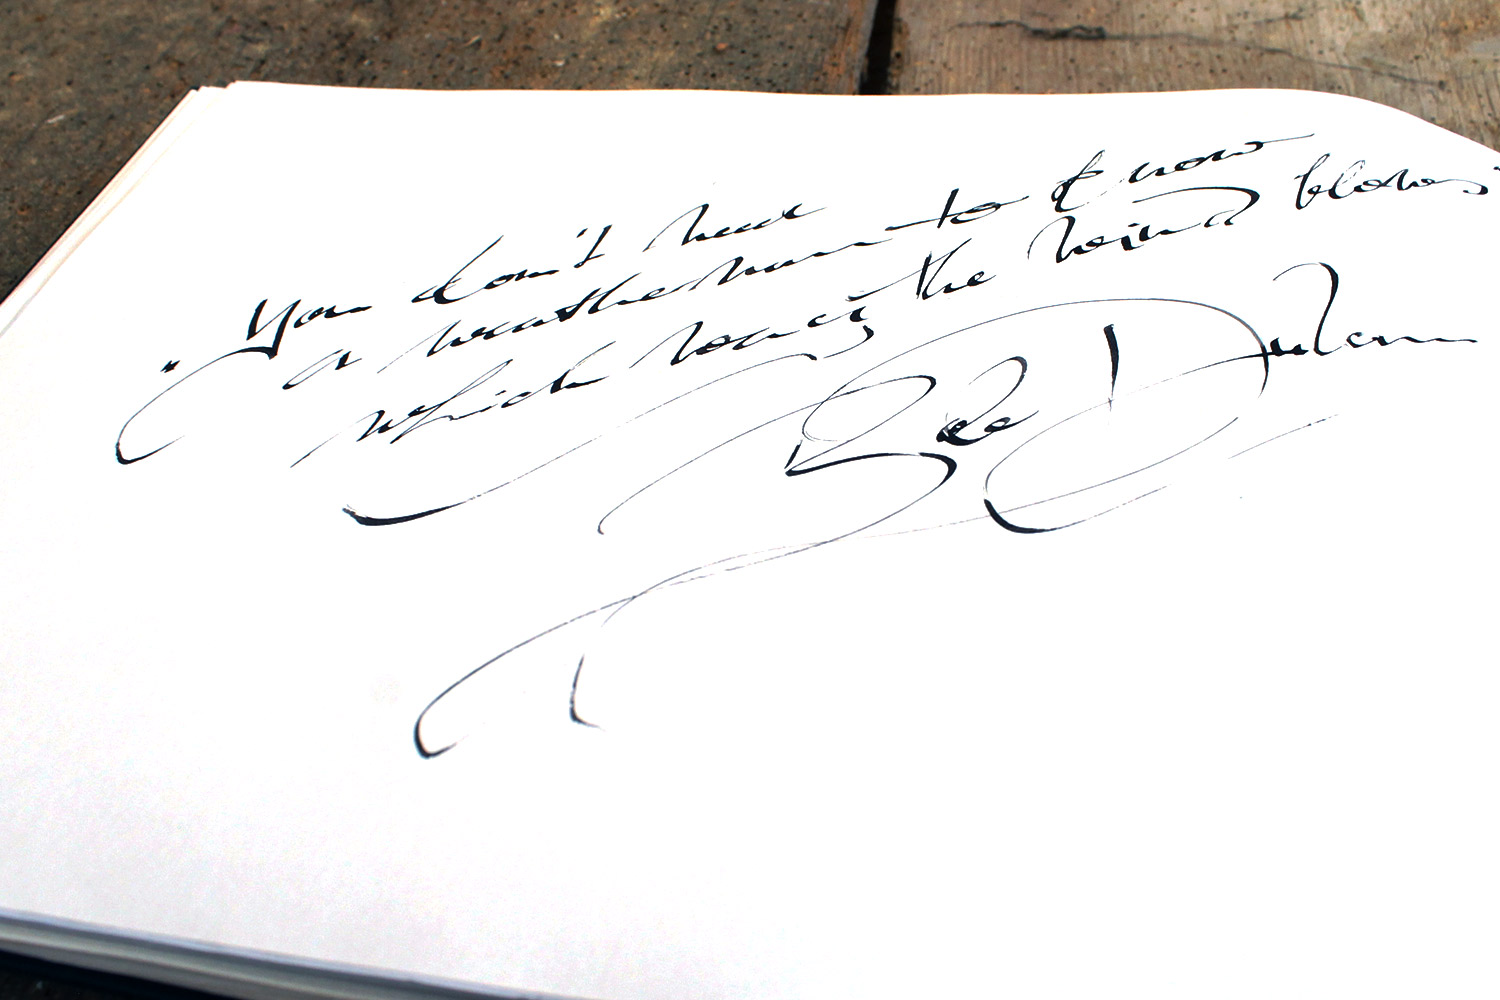 "You don't need
a weatherman to know
which way the wind blows"
Bob Dylan